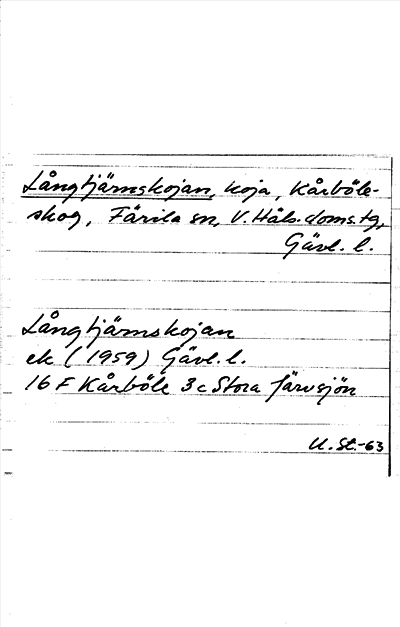 Långtjärnskojan, koja, Kårböle-
skog, Färila sn, V. Häls. doms.tg,
Gävl. l.
Långtjärnskojan
ek (1959) Gävl. l.
16 F Kårböle 3 c Stora Järvsjön
U. St.-63